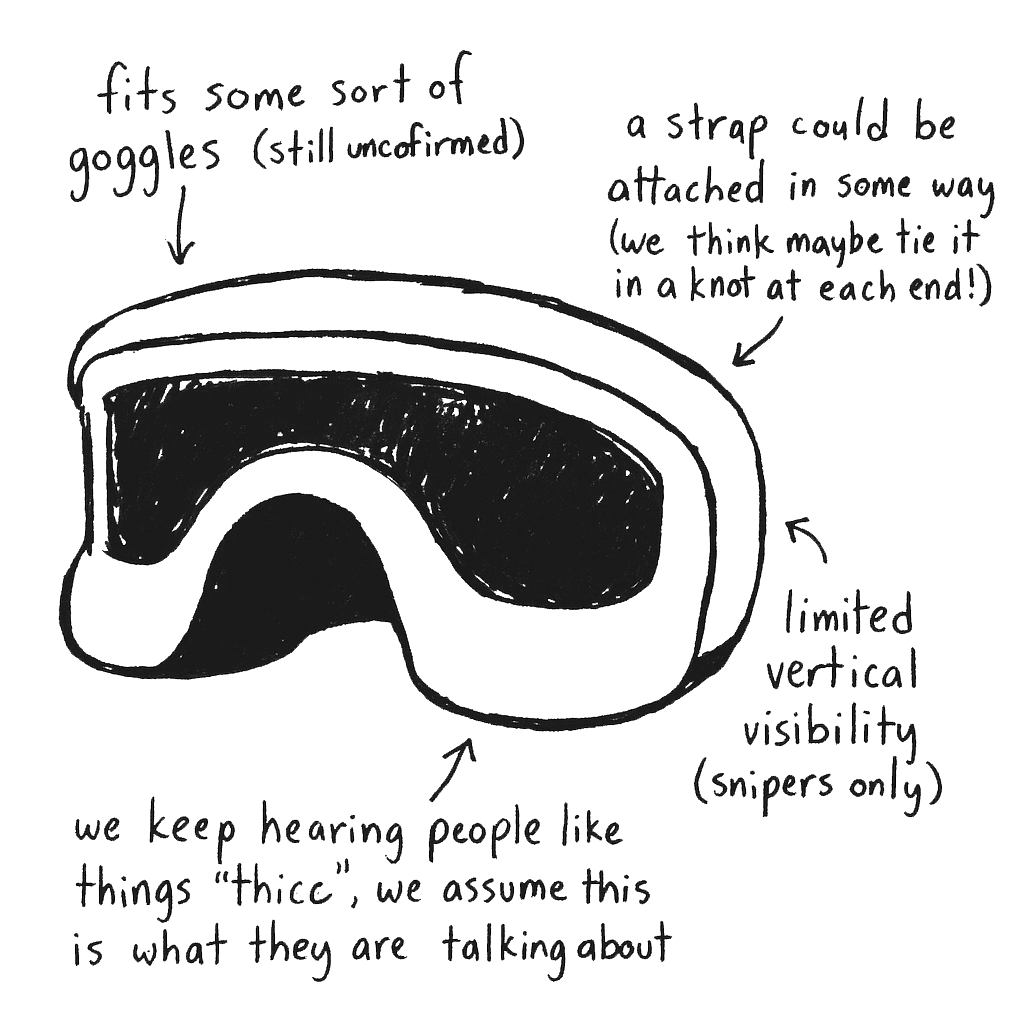 fits some sort of
goggles (still uncofirmed)
a strap could be
attached in some way
(we think maybe tie it
in a knot at each end!)
limited
vertical
visibility
(snipers only)
we keep hearing people like
things "thicc", we assume this
is what they are talking about